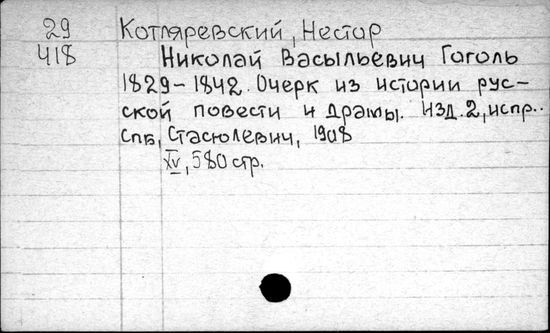 29 Котляревский, Нестор
418 Николай Васыльевич Гоголь
1829-1842. Очерк из истории рус-
ской повести и драмы. Изд. 2, испр..
Спб, Стасюлевич, 1908
XV, 580 стр.